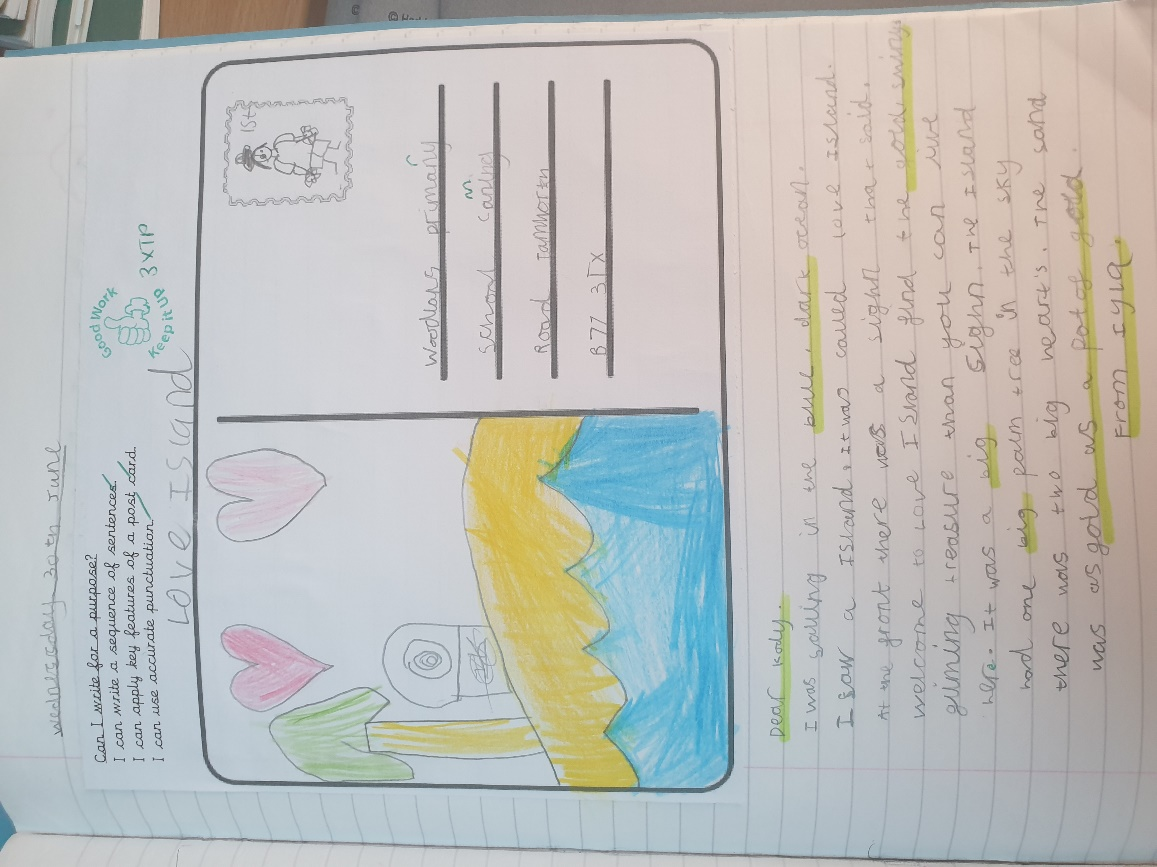 Wednesday 30th June
Can I write for a purpose?
I can write a sequence of sentences.
I can apply key features of a post card.
I can use accurate punctuation.
Good Work
Keep it UP
3XTP
Love Island
1St
Woodlans primary
school Canlny
Road Tamworth
B77 3Tx
Dear Kody.
I was sailing in the blue, dark ocean.
I saw a Island, it was called love Island.
At the front there was a sighn that said.
welcome to Love Island find the gold, shiny
glimíng treasure than you can live
here. It was a big Sighn. The Island
had one big palm tree in the sky
there was two big heart's. The sand
was as gold as a pot of gold.
From Iyla.